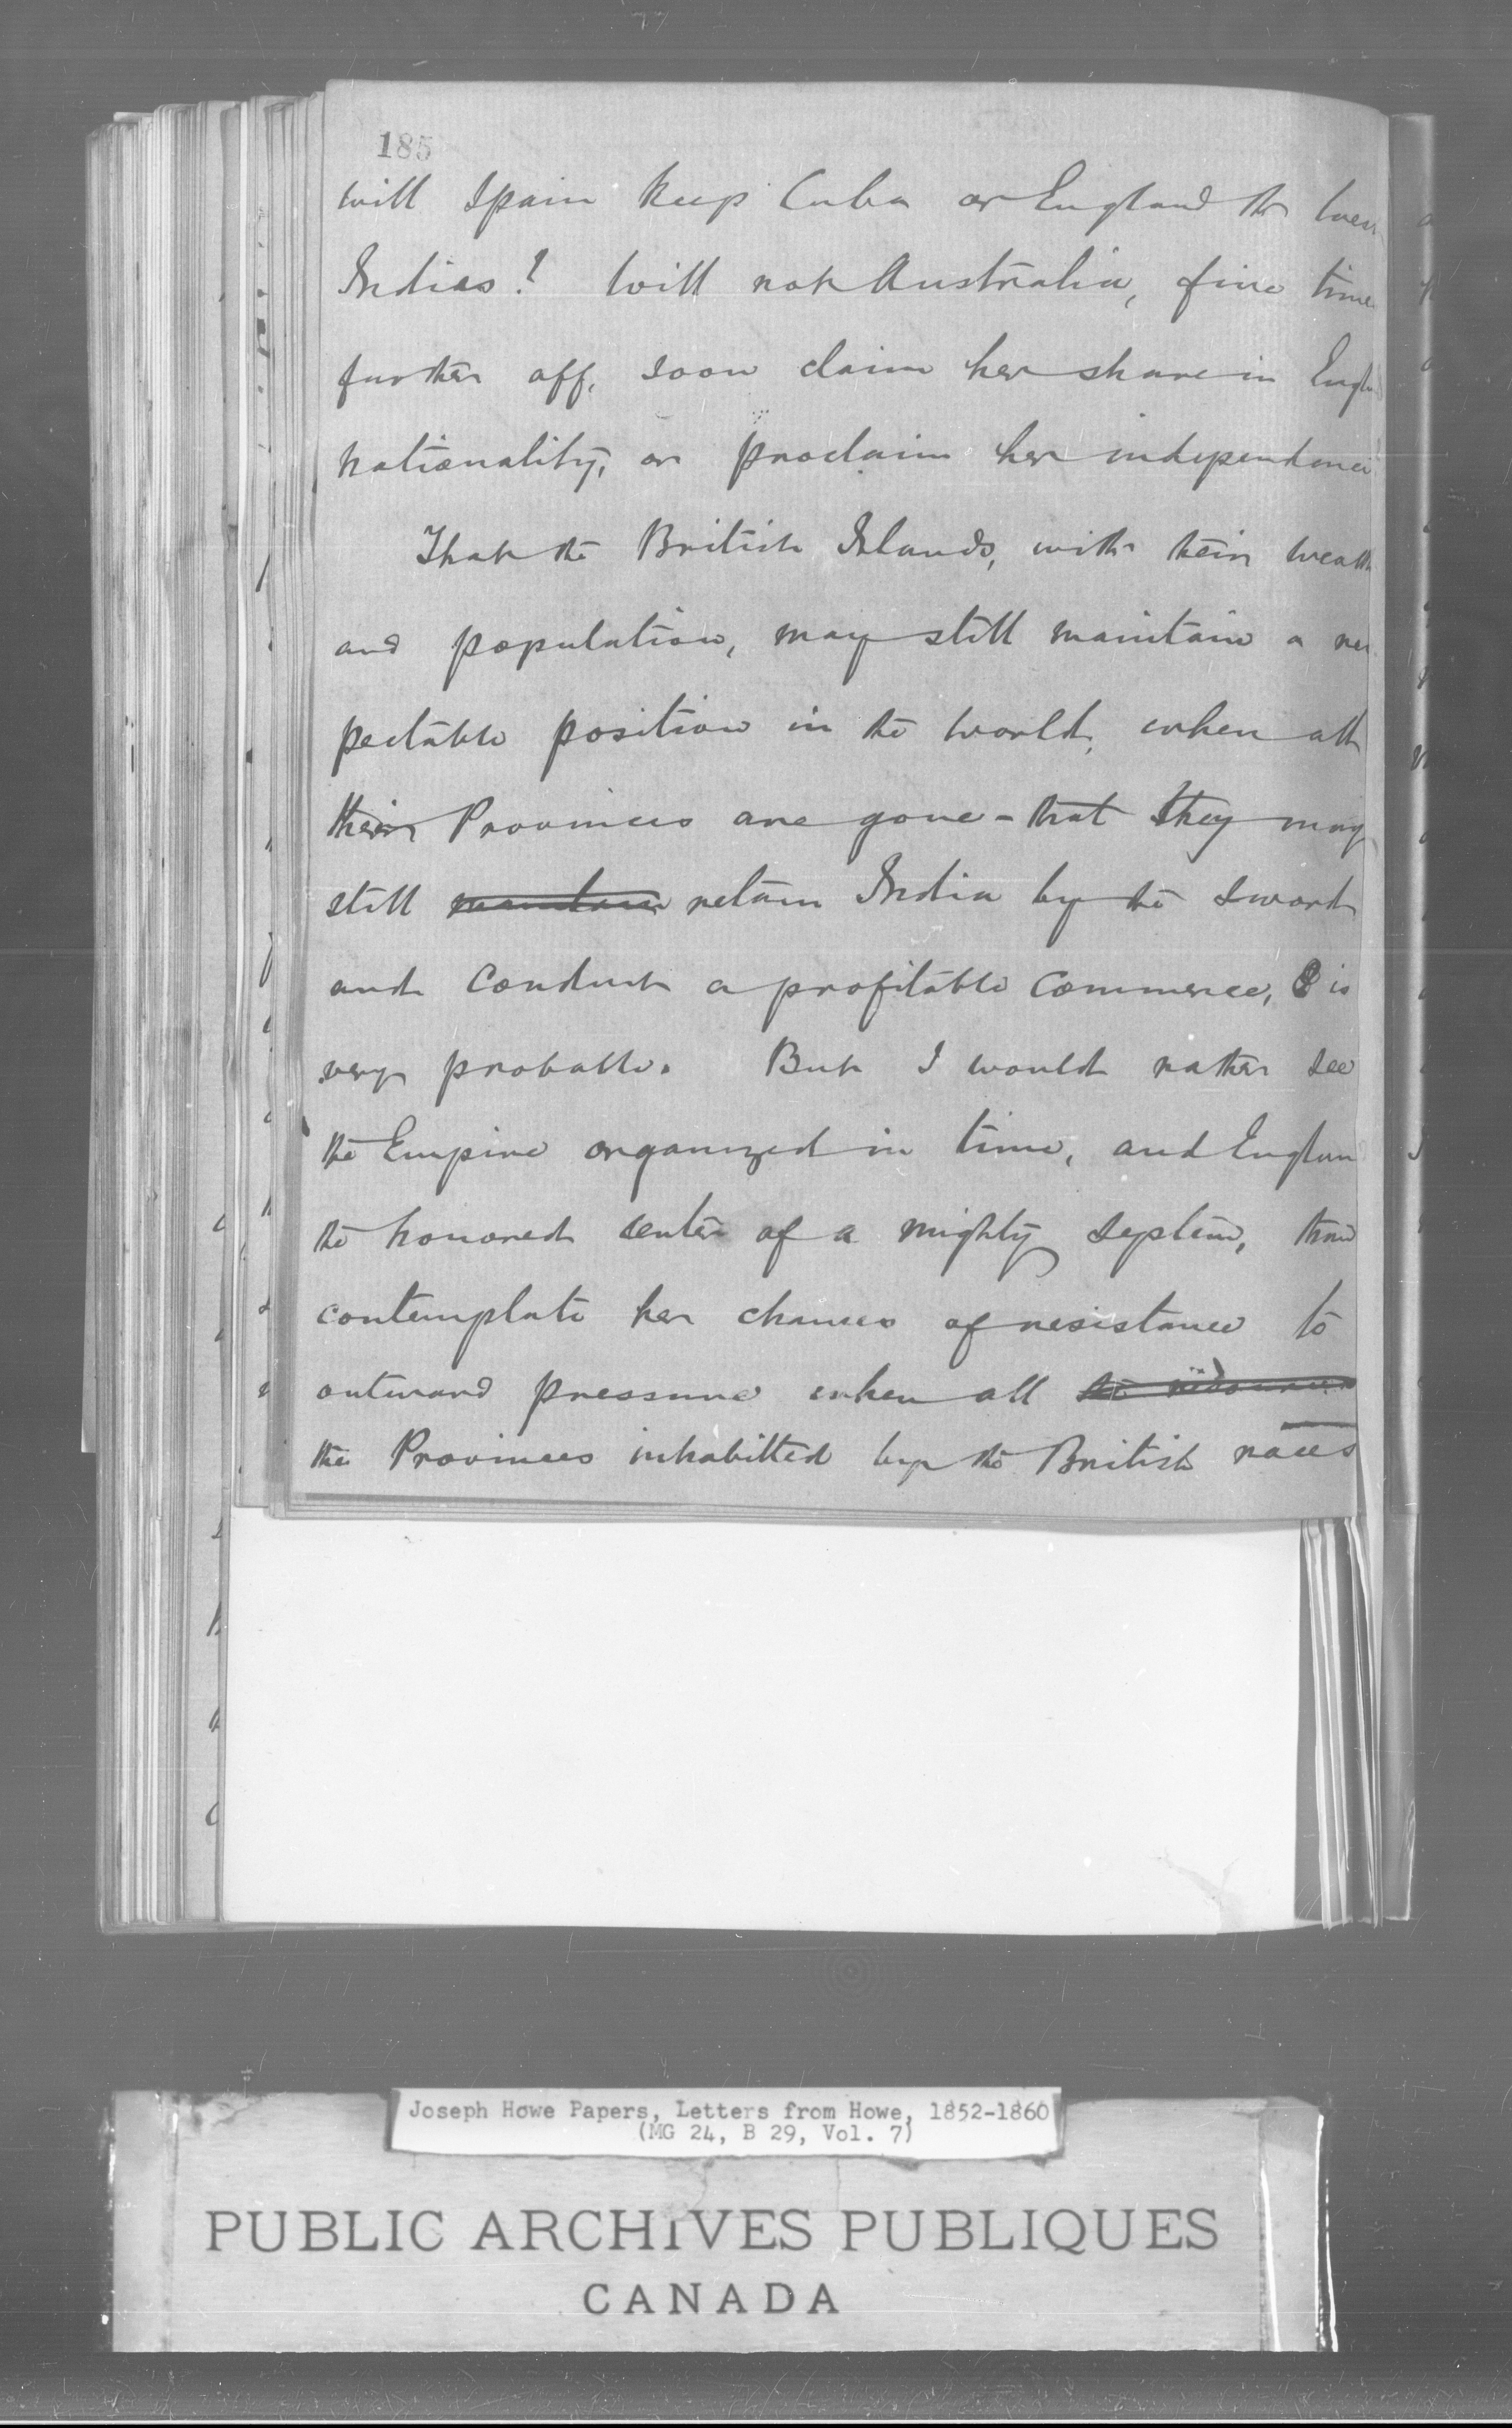 185
will Spain keep Cuba or England the West
Indies? Will not Australia, five times
further off, soon claim her share in Engl
nationality, or proclaim her independence
That the British Islands, with their wealth
and population, may still maintain a res
pectable position in the world, when all
their Provinces are gone - that they may
still maintain retain India by the sword
and conduct a profitable commerce, is
very probable. But I would rather see
the Empire organized in time, and England
the honored center of a mighty system, than
contemplate her chances of resistance to
outward pressure when all the resources
the Provinces inhabitted by the British races
Joseph Howe Papers, Letters from Howe, 1852-1860
(MG 24, B 29, Vol. 7)
PUBLIC ARCHIVES PUBLIQUES
CANADA